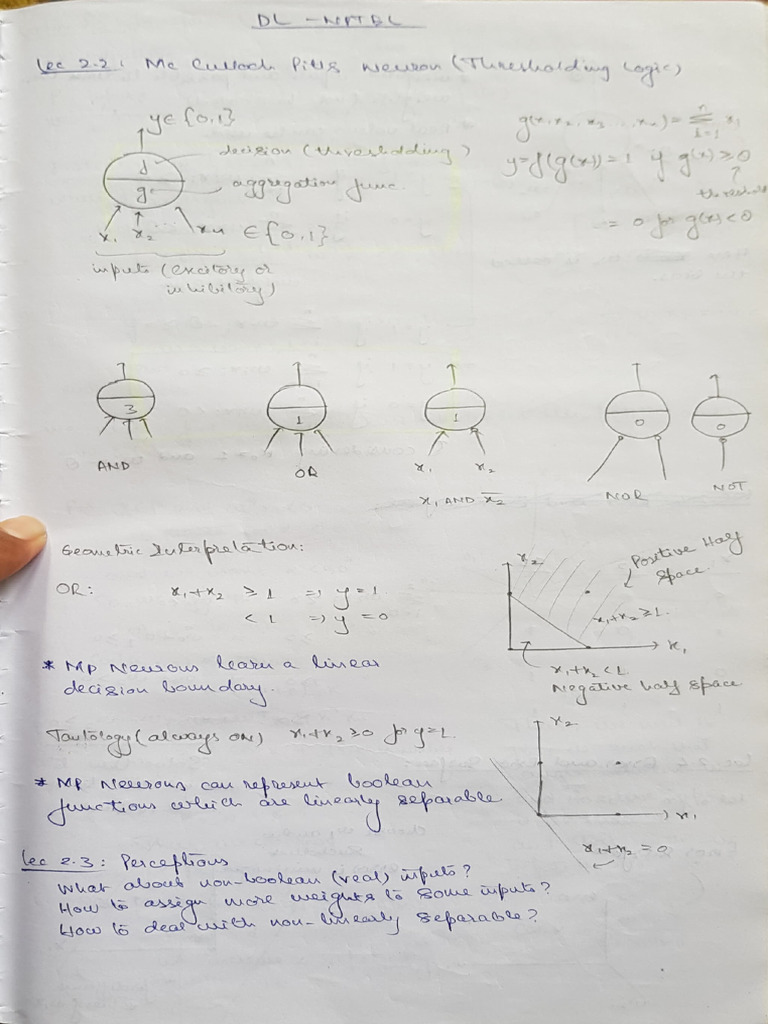 DL - NPTEL
Lec 2.2: Mc Culloch Pitts Neuron (Thresholding Logic)
y ∈ {0,1}
f
g
decision (thresholding)
aggregation func.
x₁ x₂ ... xₙ ∈ {0,1}
inputs (excitory or
inhibitory)
g(x₁,x₂,x₃ ...xₙ) = Σⁿᵢ₌₁ xᵢ
y=f(g(x)) = 1 if g(x) ≥ θ
threshold
= 0 for g(x) < θ
3
AND
1
OR
1
x₁ x₂
x₁ AND x̄₂
0
NOR
0
NOT
Geometric Interpretation:
OR: x₁+x₂ ≥ 1 ⇒ y = 1
< 1 ⇒ y = 0
x₂
Positive Half
Space.
x₁+x₂ ≥ 1.
x₁
x₁+x₂ < 1
Negative half space
* MP Neurons learn a linear
decision boundary.
Tautology (always ON) x₁+x₂ ≥ 0 for y=1.
x₂
x₁
x₁+x₂ = 0
* MP Neurons can represent boolean
functions which are linearly separable
Lec 2.3: Perceptions
What about non-boolean (real) inputs?
How to assign more weights to some inputs?
How to deal with non-linearly separable?